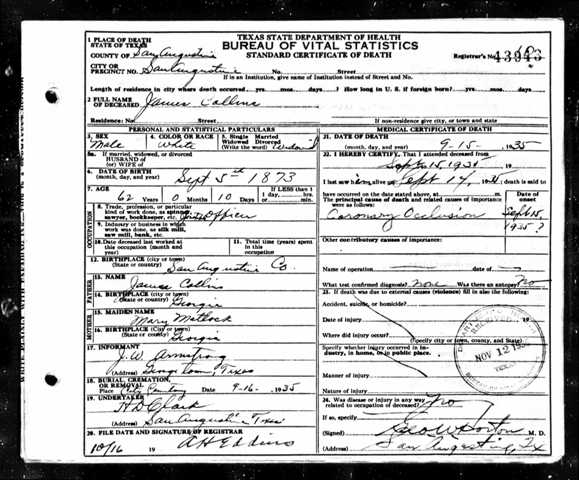 TEXAS STATE DEPARTMENT OF HEALTH
BUREAU OF VITAL STATISTICS
STANDARD CERTIFICATE OF DEATH
1 PLACE OF DEATH
STATE OF TEXAS
COUNTY OF San Augustine
Registrar's No.
CITY OR
PRECINCT NO. San Augustine No. Street
If in an Institution, give name of Institution instead of Street and No.
Length of residence in city where death occurred yrs. mos. days. ? How long in U. S. if foreign born? yrs. mos. days
2 FULL NAME
OF DECEASED James Collins
Residence: No. Street
If non-residence give city, or town and state
PERSONAL AND STATISTICAL PARTICULARS
3. SEX
Male
4. COLOR OR RACE
White
5. Single Married
Widowed Divorced
(Write the word)
5a. If married, widowed, or divorced
HUSBAND of
(or) WIFE of
6. DATE OF BIRTH
(month, day, and year) Sept 5th 1873
7. AGE
62 Years 0 Months 10 Days
If LESS than
1 day, hrs.
or min.
OCCUPATION
8. Trade, profession, or particular
kind of work done, as spinner,
sawyer, bookkeeper, etc. Officer
9. Industry or business in which
work was done, as silk mill,
saw mill, bank, etc.
10. Date deceased last worked at
this occupation (month and
year)
11. Total time (years) spent
in this
occupation
12. BIRTHPLACE (city or town)
(State or country) San Augustine Co.
FATHER
13. NAME
James Collins
14. BIRTHPLACE (city or town)
(State or country) Georgia
MOTHER
15. MAIDEN
NAME Mary Matlock
16. BIRTHPLACE (city or town)
(State or country) Georgia
17. INFORMANT
J.W. Armstrong
(Address) Texas
18. BURIAL, CREMATION,
OR REMOVAL
Place City Date 9-16- 1935
19. UNDERTAKER
H D Clark
(Address) San Augustine Texas
20. FILE DATE AND SIGNATURE OF REGISTRAR
10/16 19 A H Eddins
MEDICAL CERTIFICATE OF DEATH
21. DATE OF DEATH
(month, day, and year) 9-15- 1935
22. I HEREBY CERTIFY, That I attended deceased from
Sept 15, 1935 19
I last saw him alive on Sept 14, 1935 death is said to
have occurred on the date stated above, at m.
The principal cause of death and related causes of importance
were as follows:
Date of
onset
Coronary Occlusion
Sept 15,
1935?
Other contributory causes of importance:
Name of operation date of
What test confirmed diagnosis? None Was there an autopsy? No
23. If death was due to external causes (violence) fill in also the
following:
Accident, suicide, or homicide?
Date of injury 19
Where did injury occur?
(Specify city or town, county, and State)
Specify whether injury occurred in industry, in home, or in public place.
Manner of injury
Nature of injury
NOV 12 1935
TEXAS
24. Was disease or injury in any way
related to occupation of deceased? No
If so, specify
(Signed) Geo W Horton M. D.
(Address) San Augustine, Tx